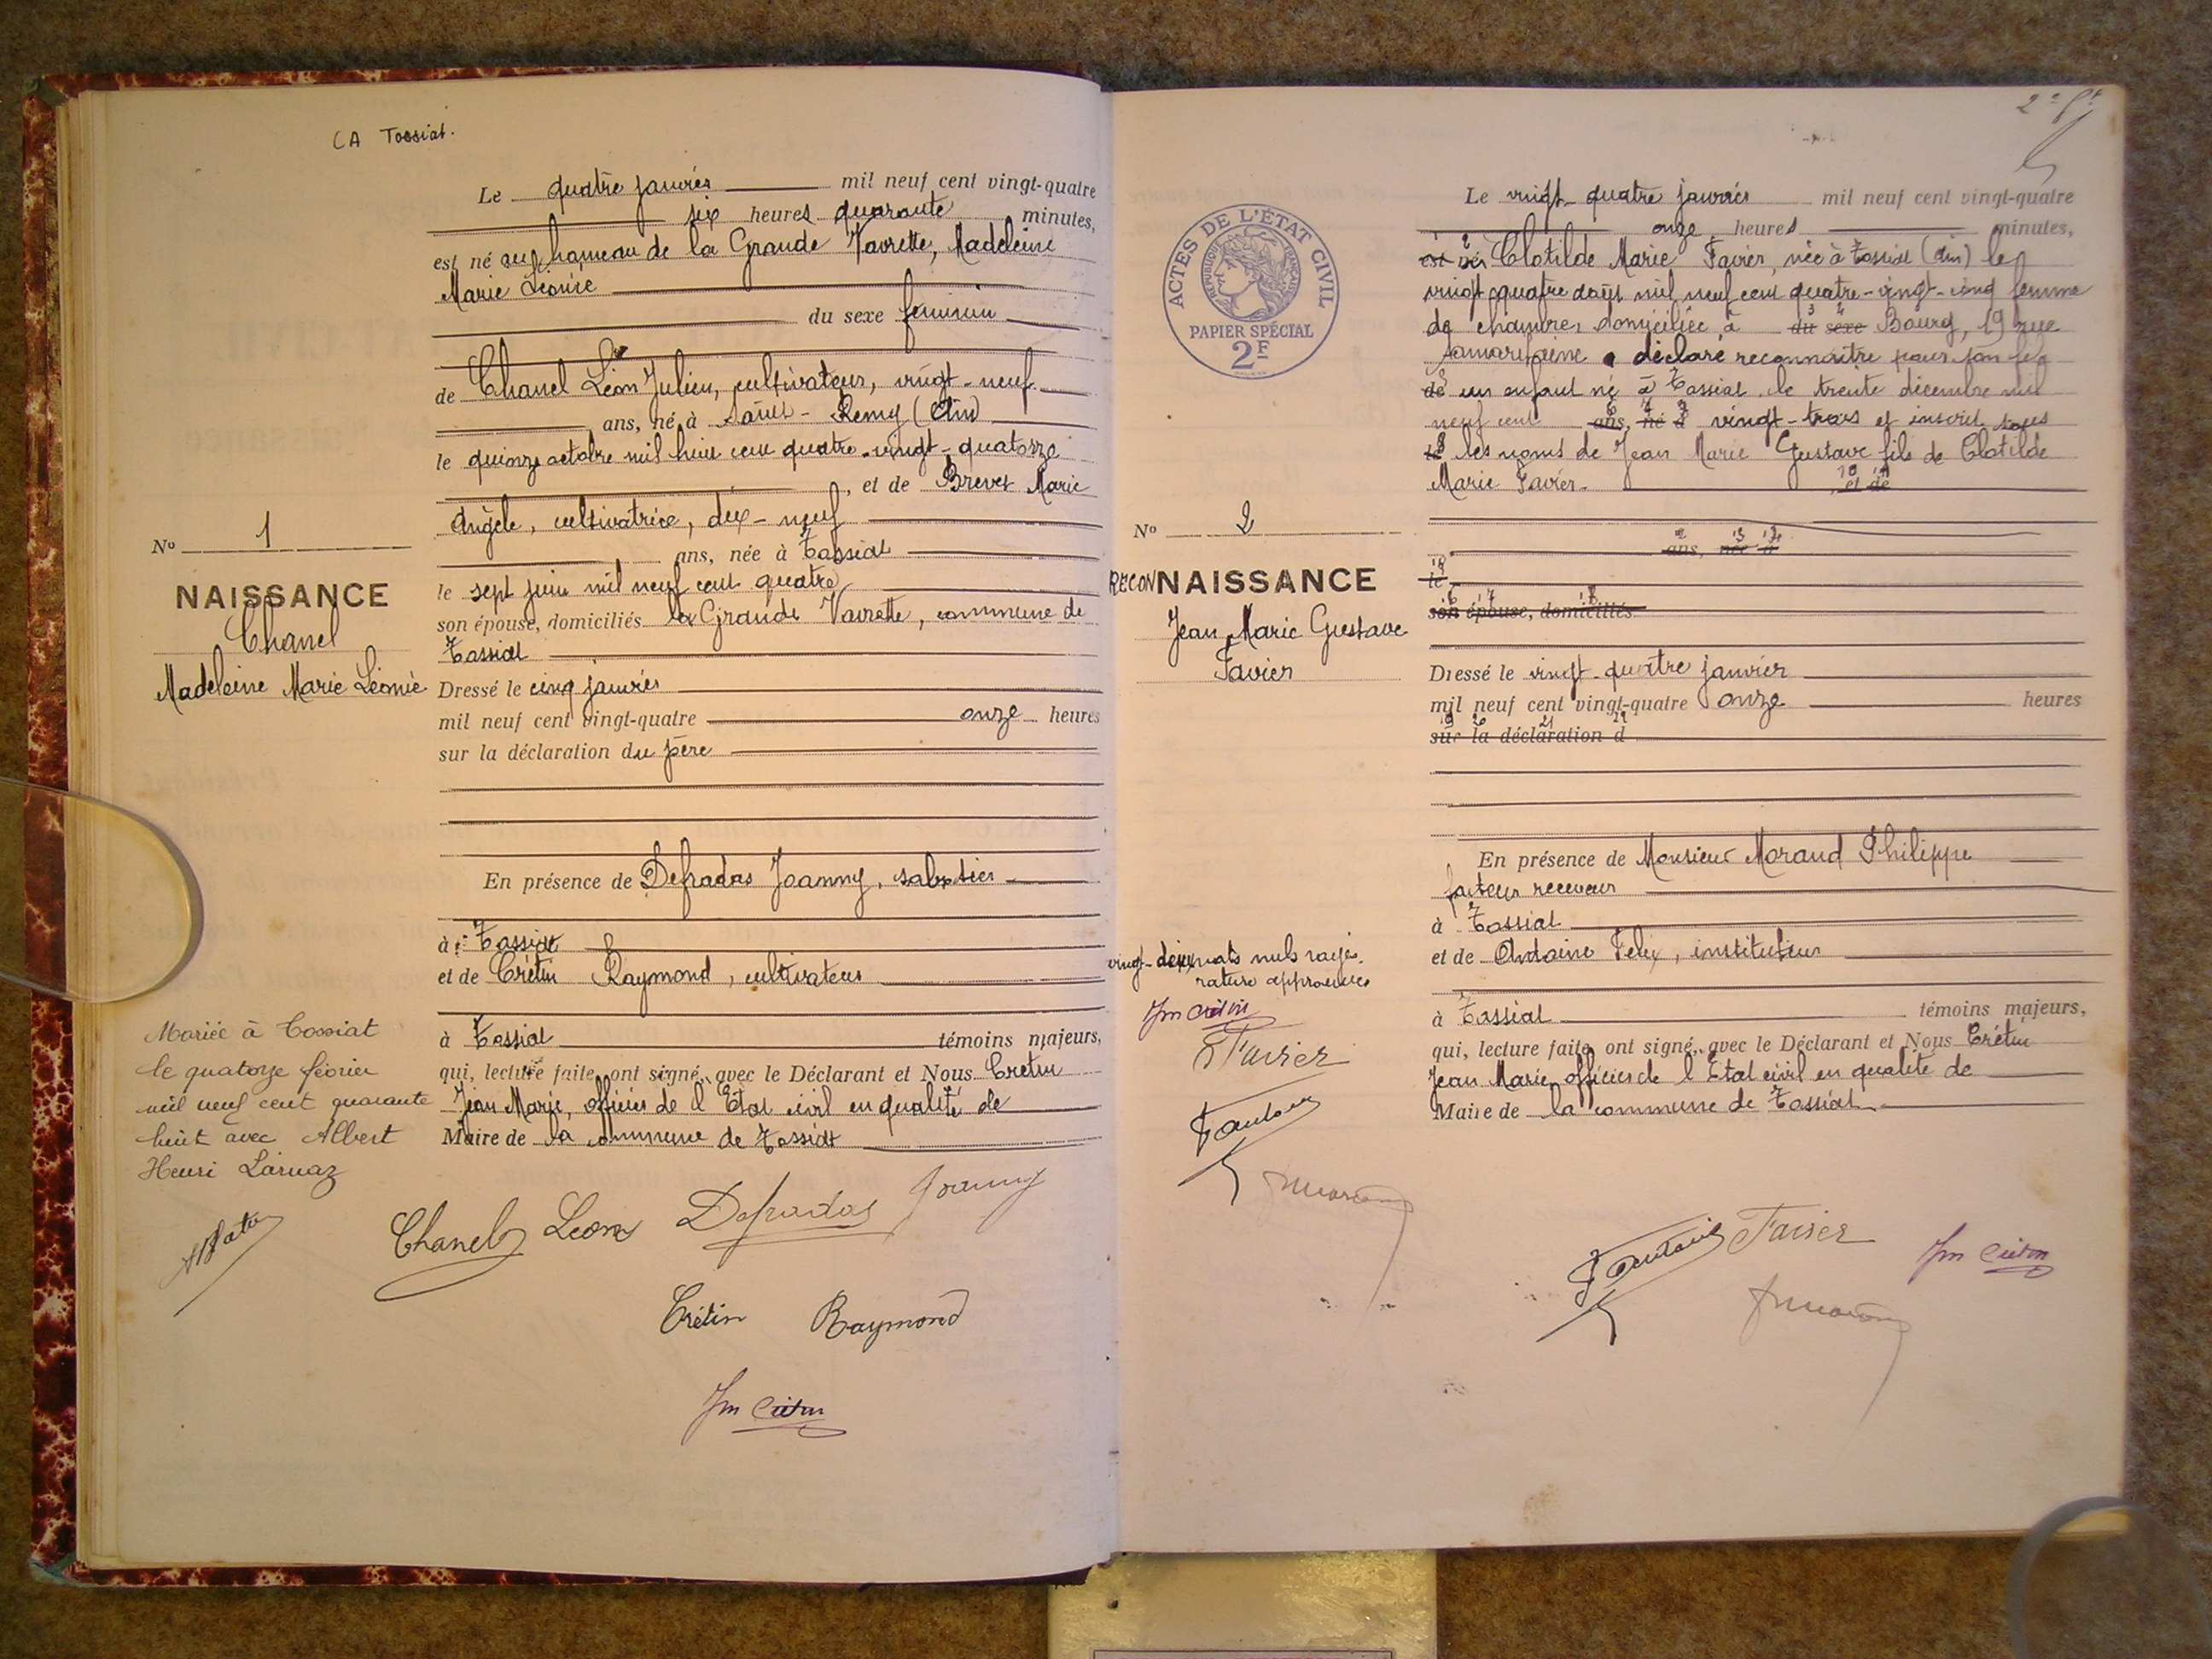 CA Tossiat.
Le quatre janvier mil neuf cent vingt-quatre
six heures quarante minutes,
est né au hameau de la Grande Vavrette, Madeleine
Marie Léonie
du sexe féminin
de Chanel Léon Julien, cultivateur, vingt-neuf
ans, né à Saint-Remy (Ain)
le quinze octobre mil huit cent quatre-vingt-quatorze
, et de Brevet Marie
Angèle, cultivatrice, dix-neuf
ans, née à Tossiat
le sept juin mil neuf cent quatre
son épouse, domiciliés la Grande Vavrette, commune de
Tossiat
Dressé le cinq janvier
mil neuf cent vingt-quatre onze heures
sur la déclaration du père
En présence de Defradas Joanny, sabotier
à Tossiat
et de Crétin Raymond, cultivateur
à Tossiat témoins majeurs,
qui, lecture faite, ont signé, avec le Déclarant et Nous Crétin
Jean Marie, officier de l'Etat civil en qualité de
Maire de la commune de Tossiat
No 1
NAISSANCE
Chanel
Madeleine Marie Léonie
Mariée à Tossiat
le quatorze février
mil neuf cent quarante
huit avec Albert
Henri Larnaz
Chanel Léon Defradas Joanny
Crétin Raymond
Jm Crétin
2e ft
ACTES DE L'ÉTAT CIVIL
RÉPUBLIQUE FRANÇAISE
PAPIER SPÉCIAL
2F
Le vingt-quatre janvier mil neuf cent vingt-quatre
onze heures minutes,
est né Clotilde Marie Favier, née à Tossiat (Ain) le
vingt quatre août mil neuf cent quatre-vingt-cinq femme
de chambre, domiciliée à du sexe Bourg, 19 rue
Samaritaine a déclaré reconnaître pour son fils
de un enfant né à Tossiat le trente décembre mil
neuf cent ans, né à vingt-trois et inscrit sous
le les noms de Jean Marie Gustave fils de Clotilde
Marie Favier. , et de
ans, née à
le
son épouse, domiciliés
Dressé le vingt-quatre janvier
mil neuf cent vingt-quatre onze heures
sur la déclaration d
En présence de Monsieur Morand Philippe
facteur receveur
à Tossiat
et de Antoine Félix, instituteur
à Tossiat témoins majeurs,
qui, lecture faite, ont signé, avec le Déclarant et Nous Crétin
Jean Marie, officier de l'Etat civil en qualité de
Maire de la commune de Tossiat
No 2
RECONNAISSANCE
Jean Marie Gustave
Favier
vingt-deux mots nuls rayés.
rature approuvée
Jm Crétin
Favier
F Antoine
Morand
F Antoine Favier Jm Crétin
Morand